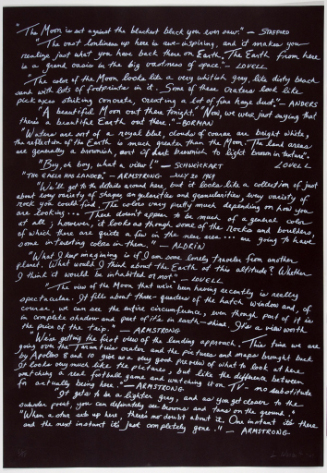 "The Moon is set against the blackest black you ever saw." — STAFFORD
"The vast loneliness up here is awe-inspiring, and it makes you
realize just what you have back there on Earth. The Earth from here
is a grand oasis in the big vastness of space." — LOVELL
The color of the Moon looks like a very whitish gray, like dirty beach
sand with lots of footprints in it. Some of these craters look like
pickaxes striking concrete, creating a lot of fine haze dust." — ANDERS
"A beautiful Moon out there tonight." "Now, we were just saying that
there's a beautiful Earth out there." — BORMAN
"Waters are sort of a royal blue, clouds of course are bright white,
the reflection off the Earth is much greater than the Moon. The land areas
are generally a brownish, sort of dark brownish to light brown in texture."
"Boy, oh boy, what a view!" — SCHWEICKART LOVELL
"THE EAGLE HAS LANDED." — ARMSTRONG July 20 1969
"We'll get to the details around here, but it looks like a collection of just
about every variety of shapes, angularities and granularities, every variety of
rock you could find. The colors vary pretty much depending on how you
are looking... There doesn't appear to be much of a general color
at all; however, it looks as though some of the rocks and boulders,
of which there are quite a few in the near area... are going to have
some interesting colors in them." — ALDRIN
"What I keep imagining is if I am some lonely traveler from another
planet. What would I think about the Earth at this altitude? Whether
I think it would be inhabited or not" — LOVELL
"The view of the Moon that we've been having recently is really
spectacular. It fills about three-quarters of the hatch window and, of
course, we can see the entire circumference, even though part of it is
in complete shadow and part of it's in earth-shine. It's a view worth
the price of the trip. — ARMSTRONG
We're getting the first view of the landing approach. This time we are
going over the Taruntius crater, and the pictures and maps brought back
by Apollos 8 and 10 give us a very good preview of what to look at here.
It looks very much like the pictures, but like the difference between
watching a real football game and watching it on TV — no substitute
for actually being here." — ARMSTRONG.
"It gets to be a lighter gray, and as you get closer to the
subsolar point, you can definitely see browns and tans on the ground."
"When a star sets up here, there's no doubt about it. One instant it's there
and the next instant it's just completely gone." — ARMSTRONG.